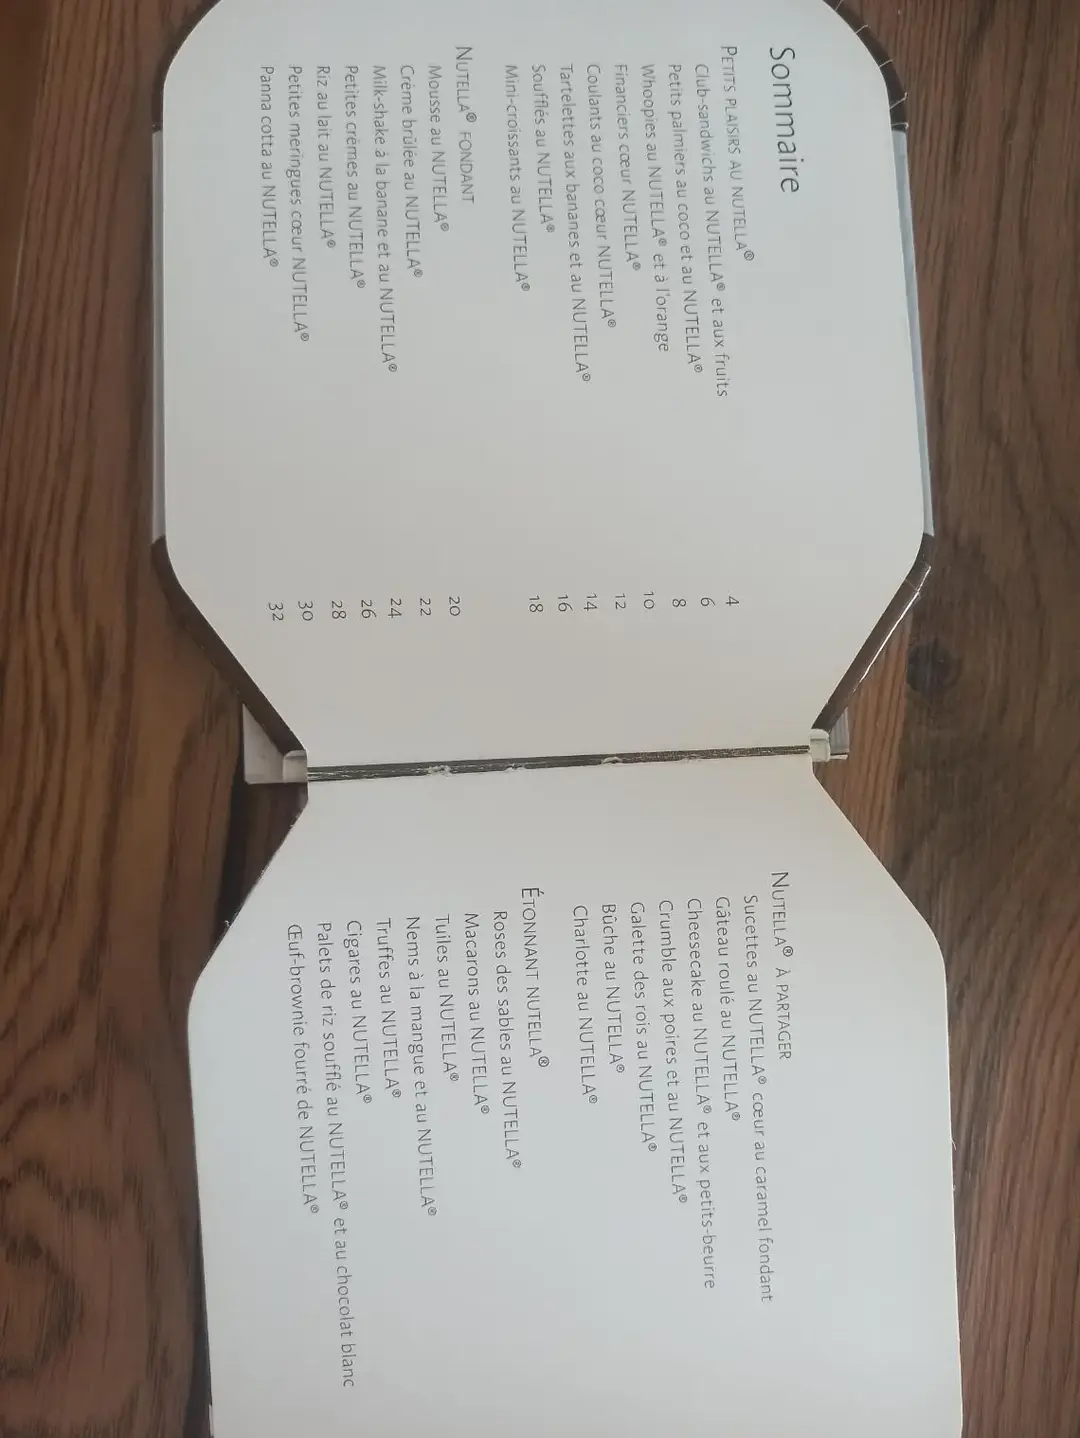 Sommaire
PETITS PLAISIRS AU NUTELLA®
Club-sandwichs au NUTELLA® et aux fruits 4
Petits palmiers au coco et au NUTELLA® 6
Whoopies au NUTELLA® et à l'orange 8
Financiers cœur NUTELLA® 10
Coulants au coco cœur NUTELLA® 12
Tartelettes aux bananes et au NUTELLA® 14
Soufflés au NUTELLA® 16
Mini-croissants au NUTELLA® 18
NUTELLA® FONDANT
Mousse au NUTELLA® 20
Crème brûlée au NUTELLA® 22
Milk-shake à la banane et au NUTELLA® 24
Petites crèmes au NUTELLA® 26
Riz au lait au NUTELLA® 28
Petites meringues cœur NUTELLA® 30
Panna cotta au NUTELLA® 32
NUTELLA® À PARTAGER
Sucettes au NUTELLA® cœur au caramel fondant
Gâteau roulé au NUTELLA®
Cheesecake au NUTELLA® et aux petits-beurre
Crumble aux poires et au NUTELLA®
Galette des rois au NUTELLA®
Bûche au NUTELLA®
Charlotte au NUTELLA®
ÉTONNANT NUTELLA®
Roses des sables au NUTELLA®
Macarons au NUTELLA®
Tuiles au NUTELLA®
Nems à la mangue et au NUTELLA®
Truffes au NUTELLA®
Cigares au NUTELLA®
Palets de riz soufflé au NUTELLA® et au chocolat blanc
Œuf-brownie fourré de NUTELLA®